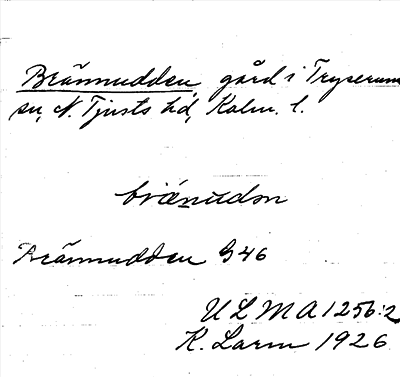 Brännudden, gård i Tryserum
sn, N. Tjusts hd, Kalm. l.
Brännudden G46
ULMA 1256:2
K. Larm 1926